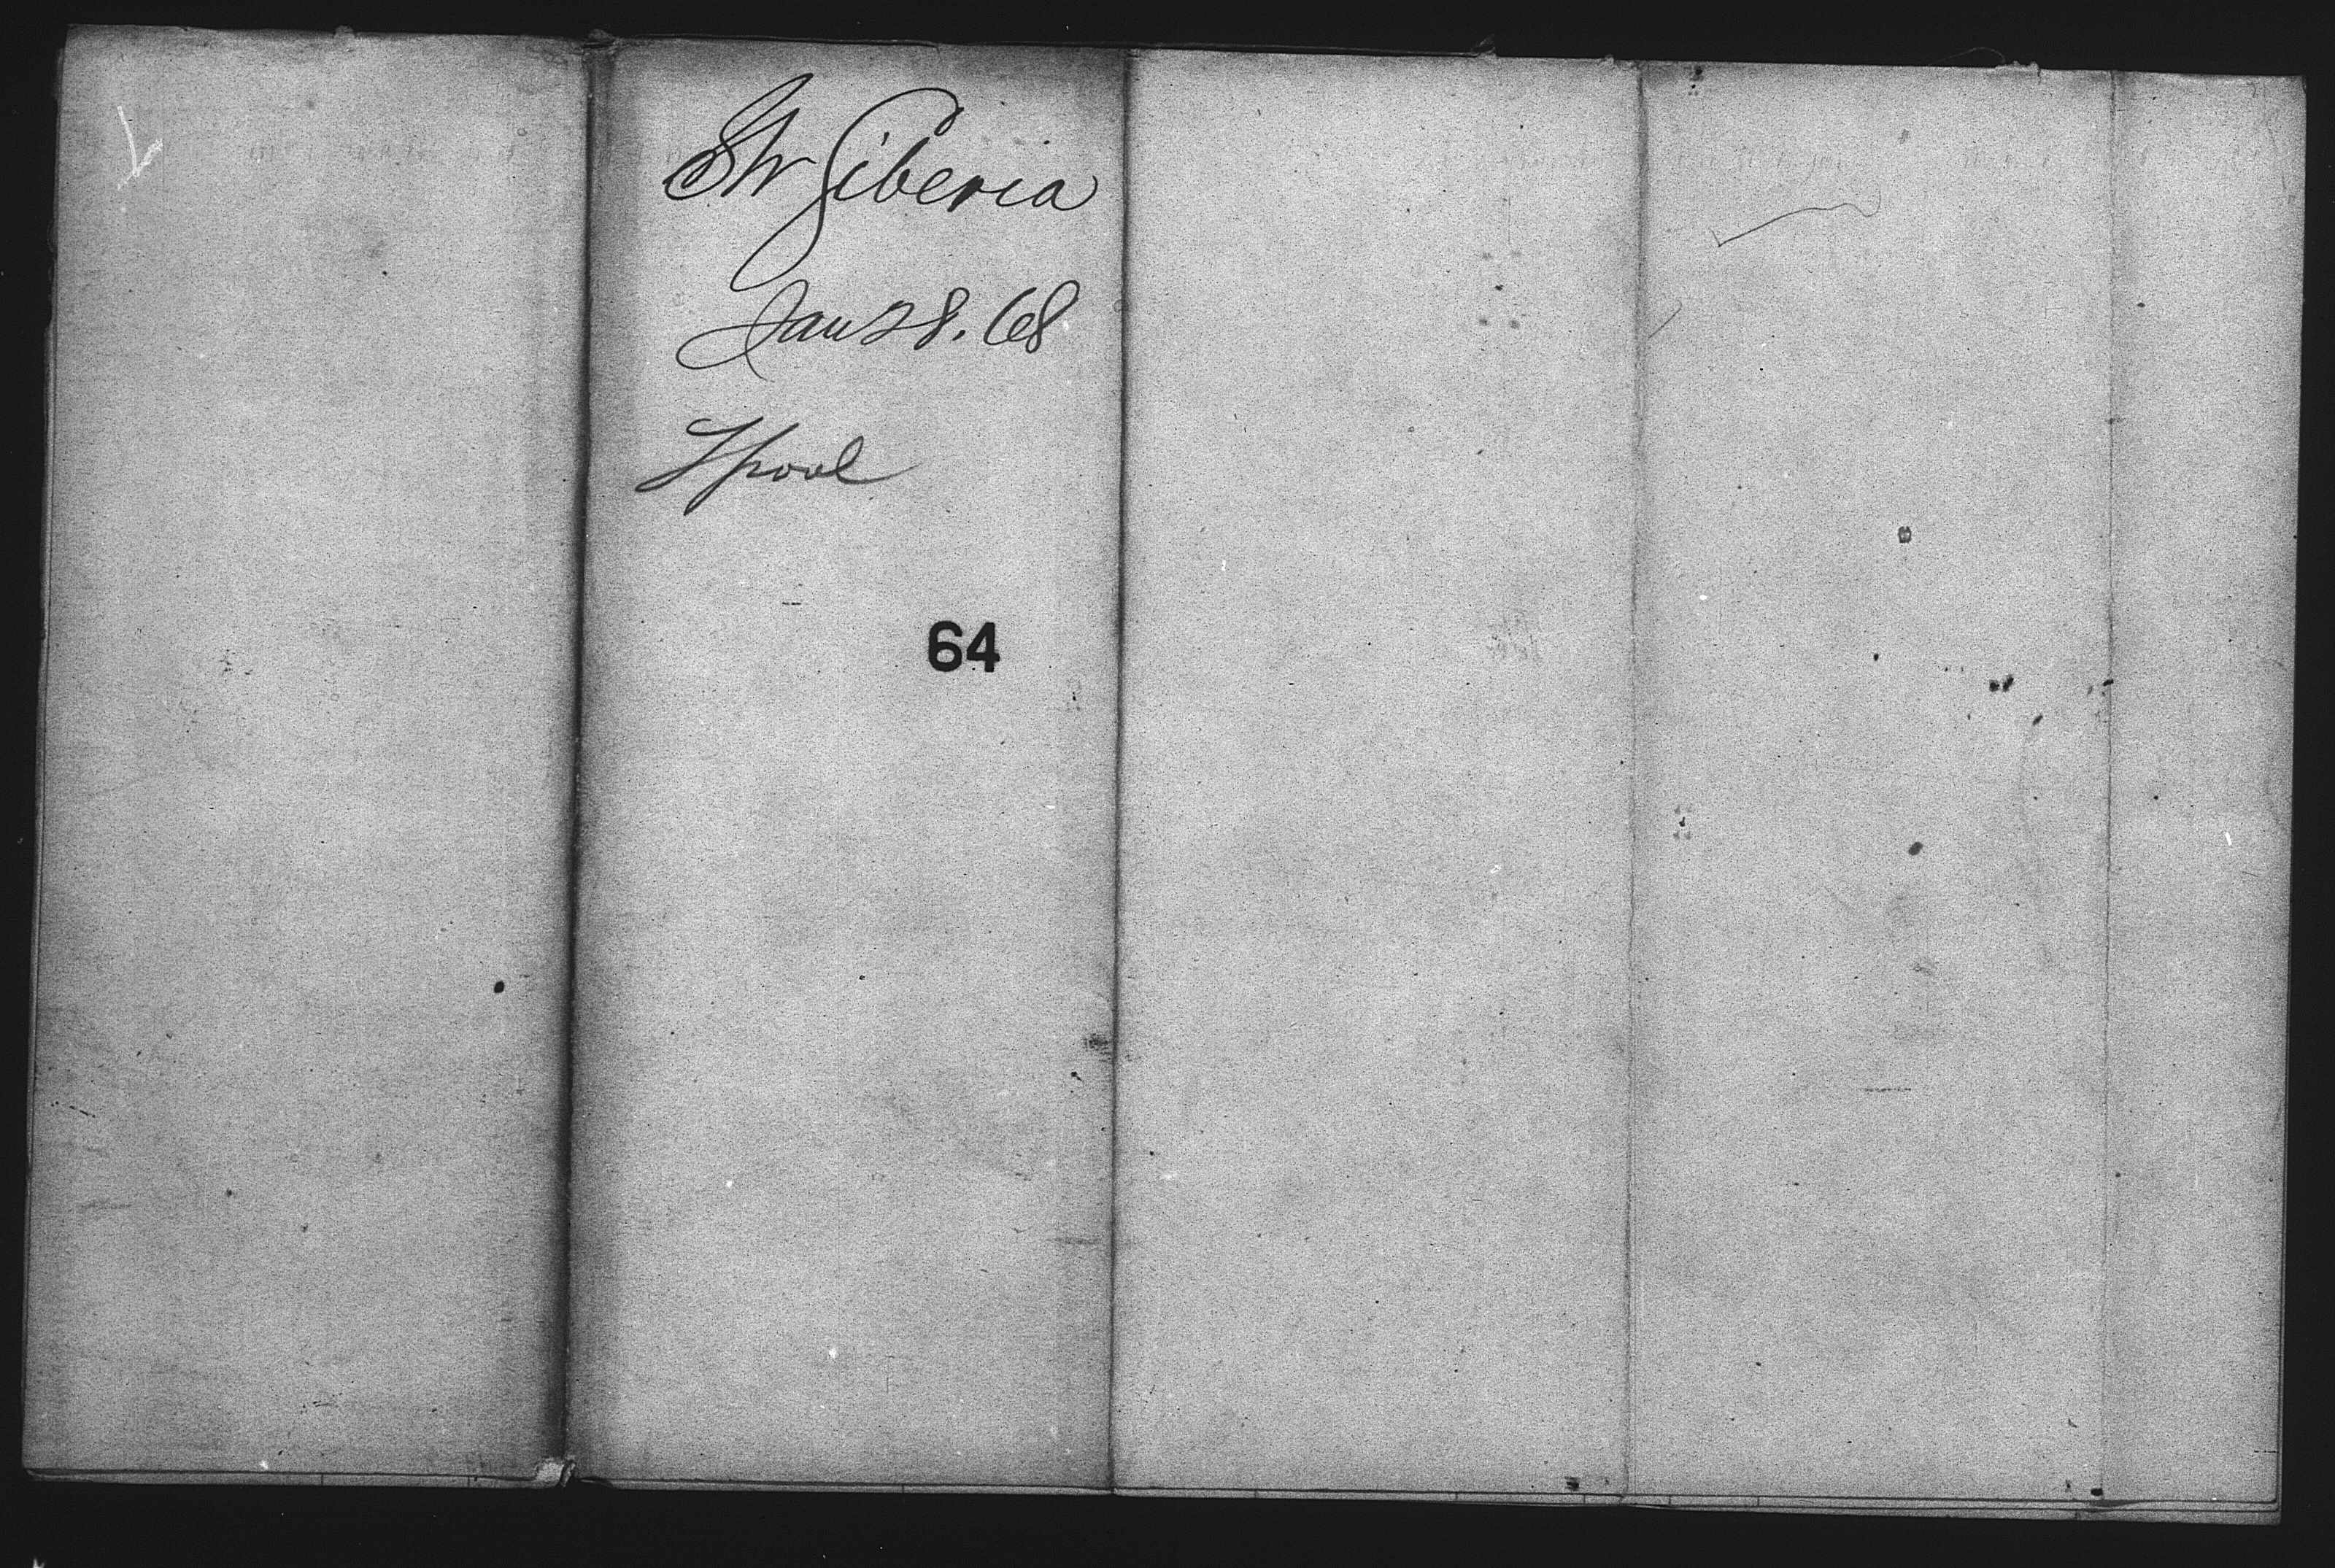 Str Siberia
Jan 28. 68
Lpool
64